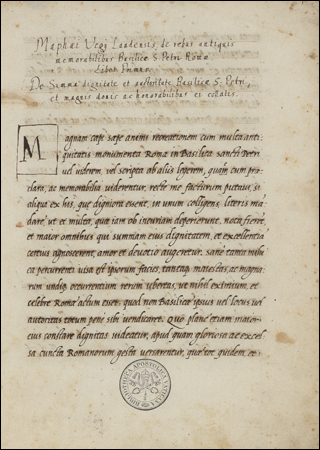 Maphæi Vegij Laudensis, de rebus antiquis
memorabilibus Basilicæ S. Petri Romæ
Liber Primus.
De Summa dignitate et auctoritate Basilicæ S. Petri,
et magnis donis ac honorabilibus ei collatis.
Magnam cæpi sæpe animi recreationem cum multa anti
quitatis monumenta Romæ in Basilica sancti Petri
uel uiderem, uel scripta ab alijs legerem, quæ cum præ
clara, ac memorabilia uiderentur, recte me facturum putaui, si
aliqua ex his, quæ digniora essent, in unum colligens, literis manda
rem, ut et multis, quæ iam ob incuriam deperierunt, nota fierent
et maior omnibus qui summam eius dignitatem, et excellentiã
certius agnoscerent, amor et deuotio augeretur. sane tanta mihi
ea percurrenti uisa est ipsorum facies, tantaque maiestas, ac magna
rum undique occurrentium rerum ubertas, ut nihil eximium, et
celebre Romæ actum esset, quod non Basilicæ ipsius uel locus uel
autoritas totum pene sibi uendicaret. Quo plane etiam maior
eius constare dignitas uideatur, apud quam gloriosa ac excel
sa cuncta Romanorum gesta uersarentur, quæ tot quidem, et
BIBLIOTHECA APOSTOLICA VATICANA